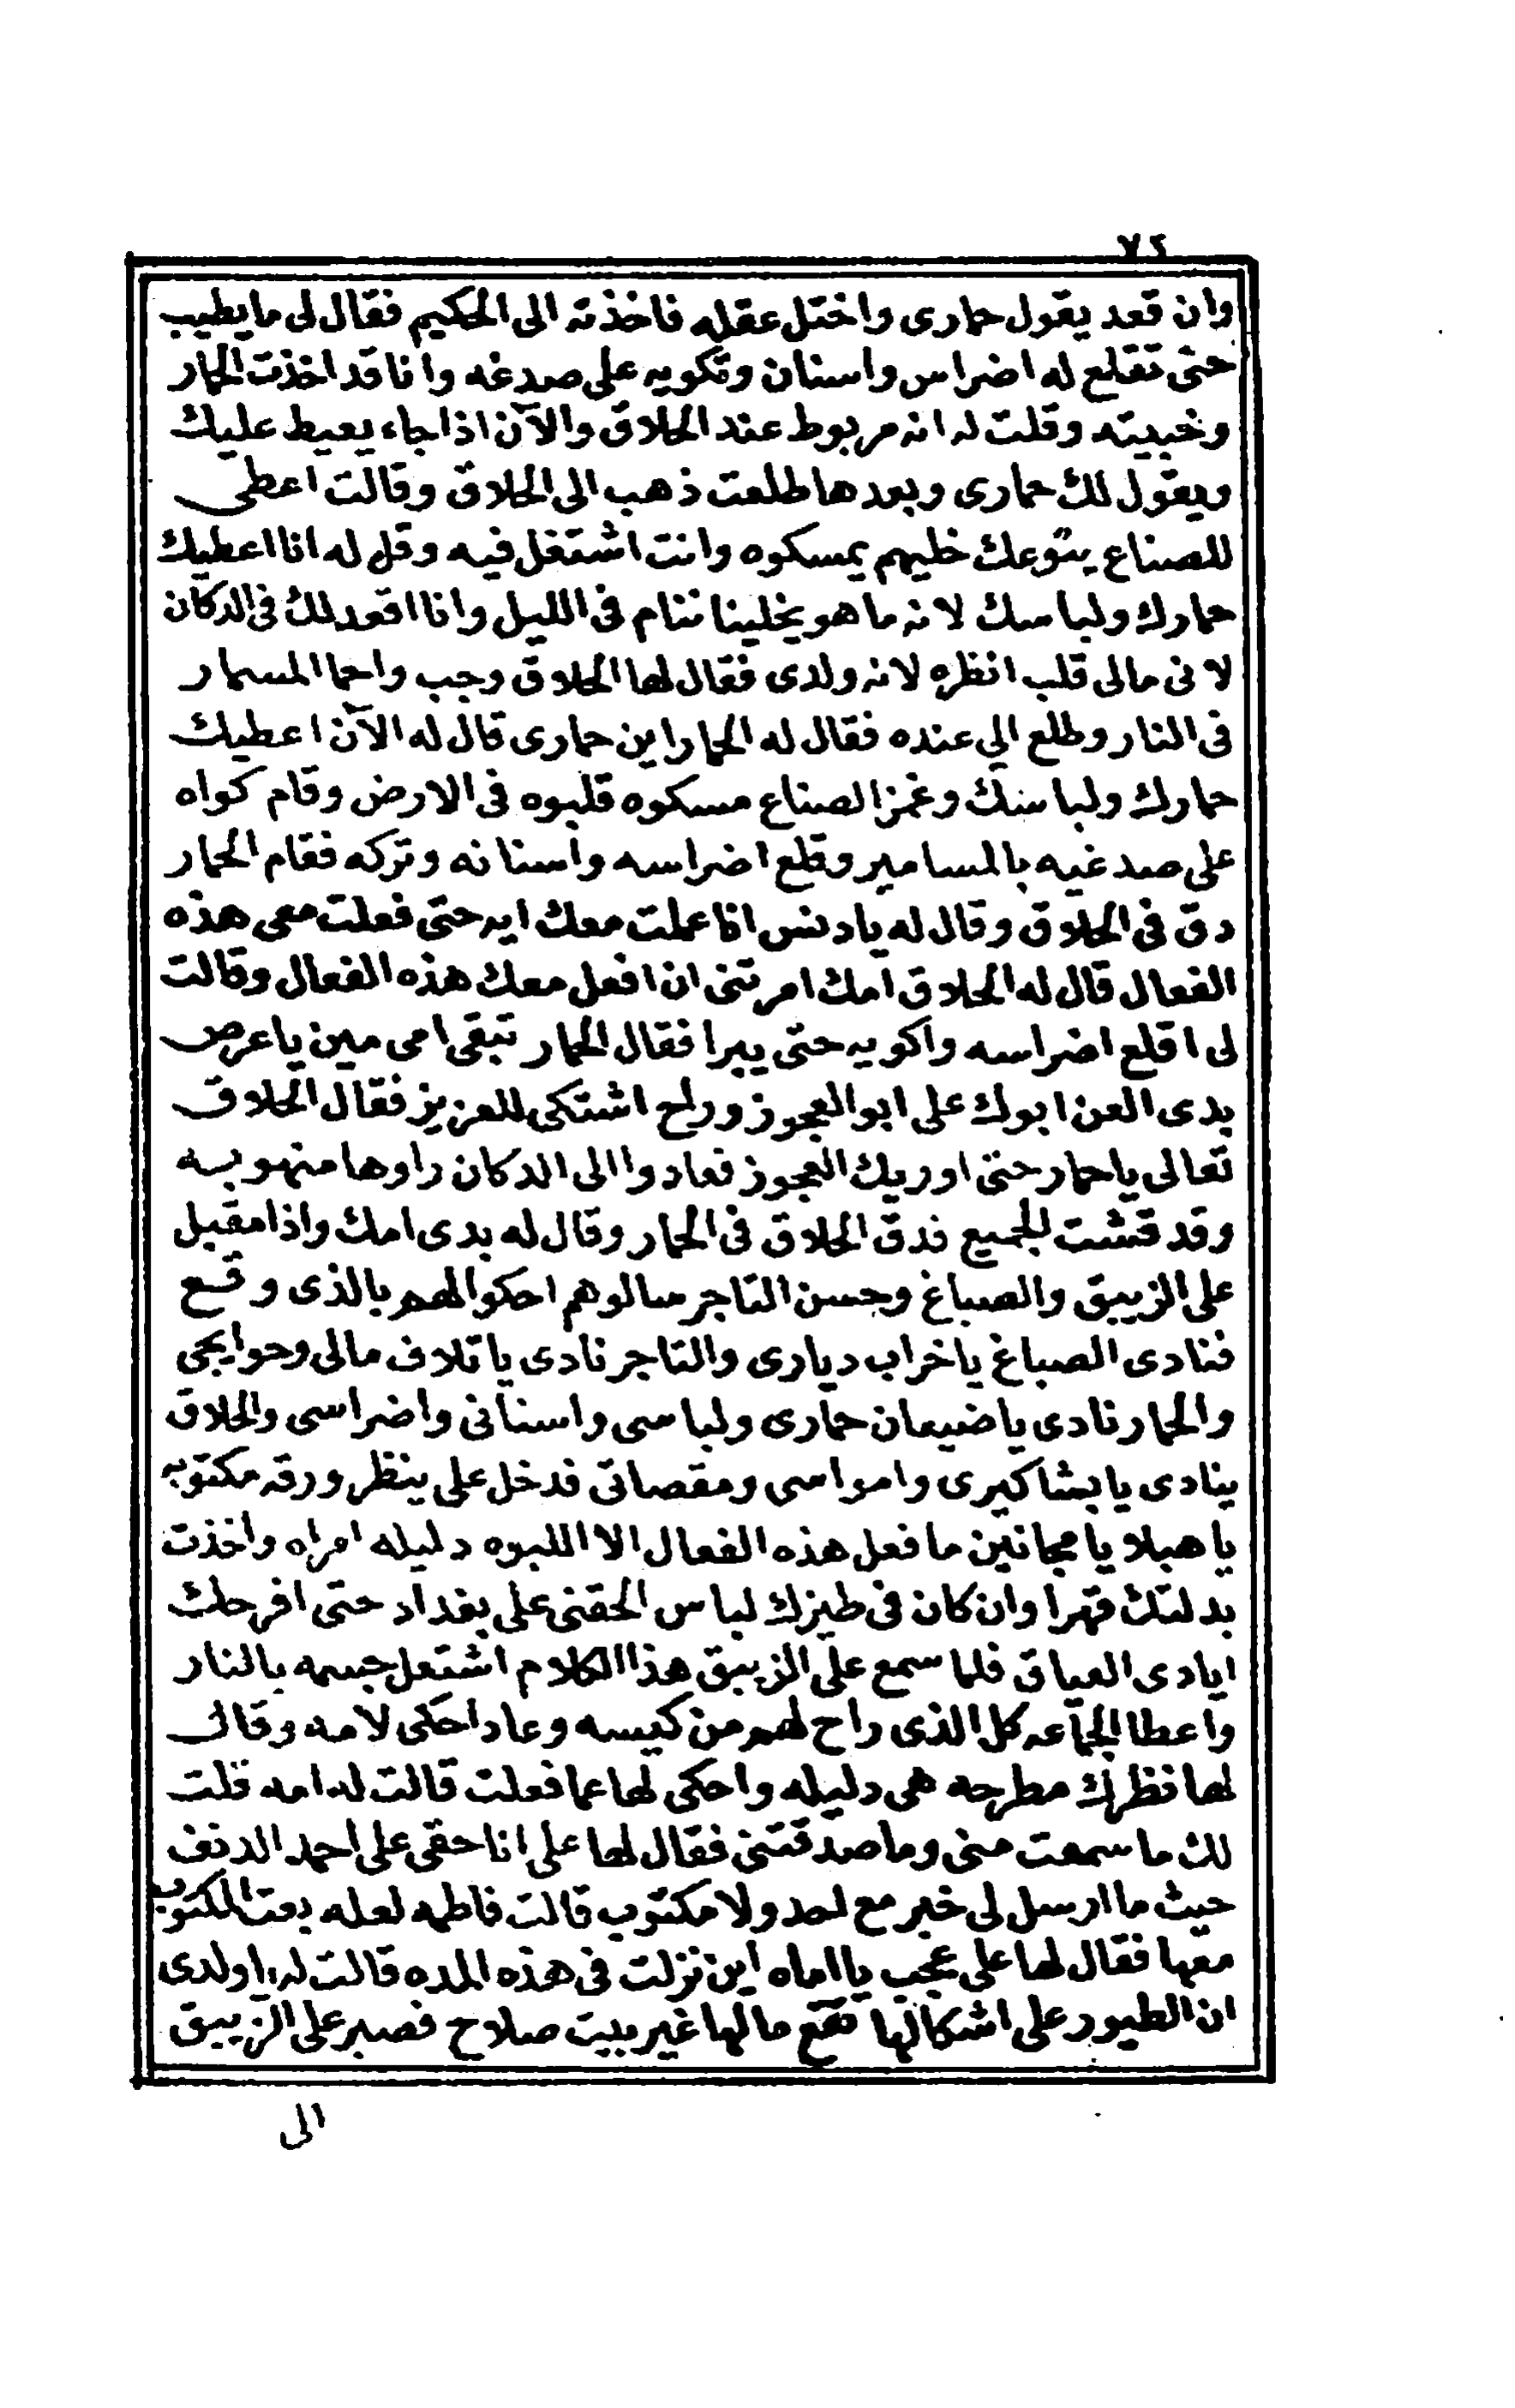 ٧٤
وان قعد يقول حمارى واختل عقله فاخذته الى الحكيم فقال لى ما يطيب
حتى تقلع له اضراس واسنان وتكويه على صدغه وانا قد اخذت الحمار
وخبيته وقلت له انه مربوط عند الحلاق والآن اذا جاء يعيط عليك
ويقول لك حمارى وبعدها طلعت ذهب الى الحلاق وقالت اعطى
للصناع بتوعك خليهم يمسكوه وانت اشتغل فيه وقل له انا اعطيك
حمارك ولباسك لانه ما هو يخلينا ننام فى الليل وانا اقعد لك فى الدكان
لانى مالى قلب انظره لانه ولدى فقال لها الحلاق وجب واحما المسمار
فى النار وطلع الي عنده فقال له الحمار اين حمارى قال له الآن اعطيك
حمارك ولباسك وغمز الصناع مسكوه قلبوه فى الارض وقام كواه
على صدغيه بالمسامير وقلع اضراسه واسنانه وتركه فقام الحمار
دق فى الحلاق وقال له يا دنس انا عملت معك ايه حتى فعلت معى هذه
الفعال قال له الحلاق امك امرتنى ان افعل معك هذه الفعال وقالت
لى اقلع اضراسه واكويه حتى يبرا فقال الحمار تبقى امى مين يا عرص
بدى العن ابوك على ابو العجوز وراح اشتكى للعزيز فقال الحلاق
تعالى يا حمار حتى اوريك العجوز فعادوا الى الدكان راوها منهوبه
وقد قشت الجميع فدق الحلاق فى الحمار وقال له بدى امك واذا مقبل
على الزيبق والصباغ وحسن التاجر سالوهم احكوا لهم بالذى وقع
فنادى الصباغ يا خراب ديارى والتاجر نادى يا تلاف مالى وحوايجى
والحمار نادى يا ضيعان حمارى ولباسى واسنانى واضراسى والحلاق
ينادى يا بشاكيرى وامواسى ومقصاتى فدخل على ينظر ورقه مكتوبه
يا هبلا يا مجانين ما فعل هذه الفعال الا اللبوه دليله امراه واخذت
بدلتك قهرا وان كان فى طيزك لباس الحقنى على بغداد حتى افرجك
ايادى العياق فلما سمع على الزيبق هذا الكلام اشتعل جسمه بالنار
واعطا الجماعه كل الذى راح لهم من كيسه وعاد احكى لامه وقال
لها نظرك مطرحه هى دليله واحكى لها عما فعلت قالت له امه قلت
لك ما سمعت منى وما صدقتنى فقال لها على انا حقى على احمد الدنف
حيث ما ارسل لى خبر مع احد ولا مكتوب قالت فاطمه لعله بعت المكتوب
معها فقال لها على عجب يا اماه اين نزلت فى هذه المده قالت له يا ولدى
ان الطيور على اشكالها تقع مالها غير بيت صلاح فصبر على الزيبق
الى